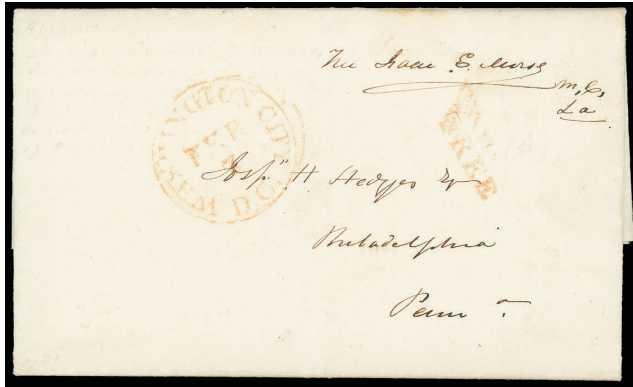 Free Isaac E. Morse
M,C,
La
WASHINGTON CITY D.C.
FEB
FREE
H Hedges Esq
Philadelphia
Penn a